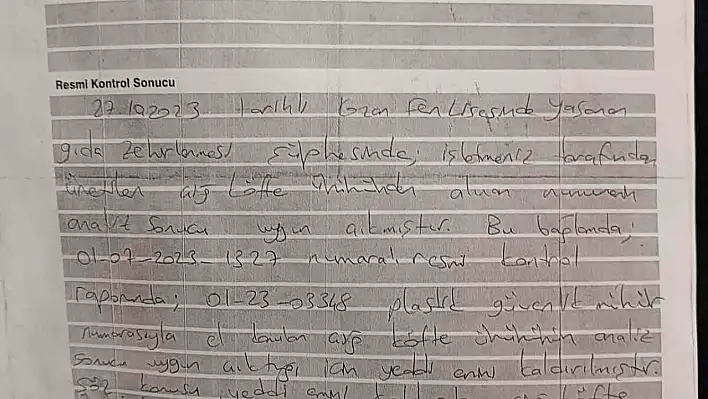 Resmi Kontrol Sonucu
27.10.2023 tarihli Fen Lisesinde yaşanan
gıda zehirlenmesi şüphesinde, işletmeniz tarafından
üretilen çiğ köfte ürününden alınan numunenin
analiz sonucu uygun çıkmıştır. Bu bağlamda;
01-07-2023-1327 numaralı resmi kontrol
raporunda; 01-23-03348 plastik güvenlik mühür
numarasıyla el konulan çiğ köfte ürününün analiz
sonucu uygun çıktığı için yeddi emin kaldırılmıştır.
Söz konusu yeddi emin köfte